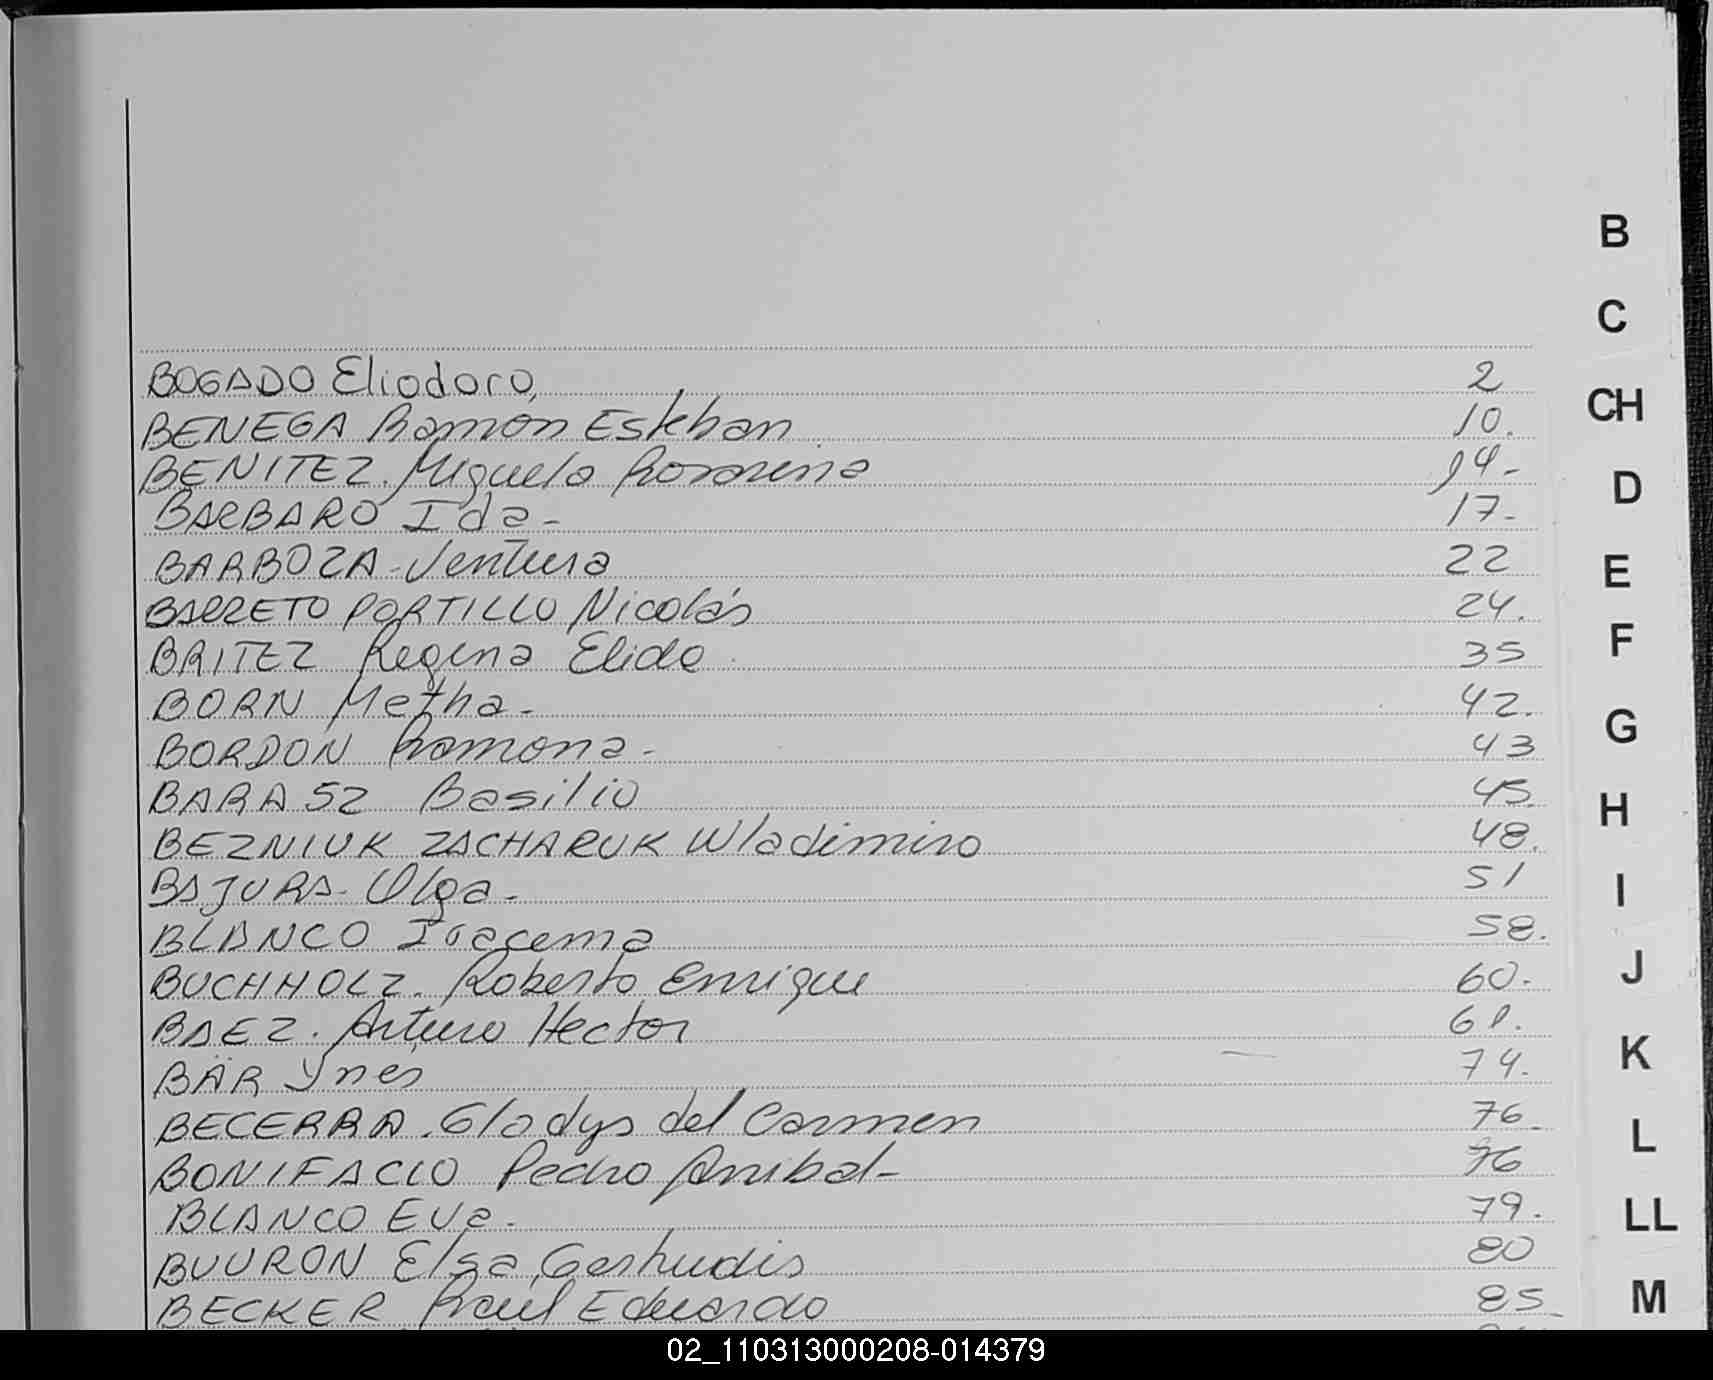 BOGADO Eliodoro, 2
BENEGA Ramon Esteban 10.
BENITEZ. Miguela Romina 14-
BARBARO Ida- 17-
BARBOZA-Ventura 22
BARRETO PORTILLO Nicolás 24.
BRITEZ Regina Elida 35
BORN Metha- 42.
BORDON Ramona- 43
BARASZ Basilio 45.
BEZNIUK ZACHARUK Wladimiro 48.
BAJURA-Olga- 51
BLANCO Iracema 58.
BUCHHOLZ. Roberto Enrique 60-
BAEZ. Arturo Hector 61.
BÄR Ynes 74.
BECERRA. Gladys del Carmen 76-
BONIFACIO Pedro Anibal- 76
BLANCO Eva- 79.
BUURON Elsa Gertrudis 80
BECKER Raul Eduardo 85-
B
C
CH
D
E
F
G
H
I
J
K
L
LL
M
02_110313000208-014379